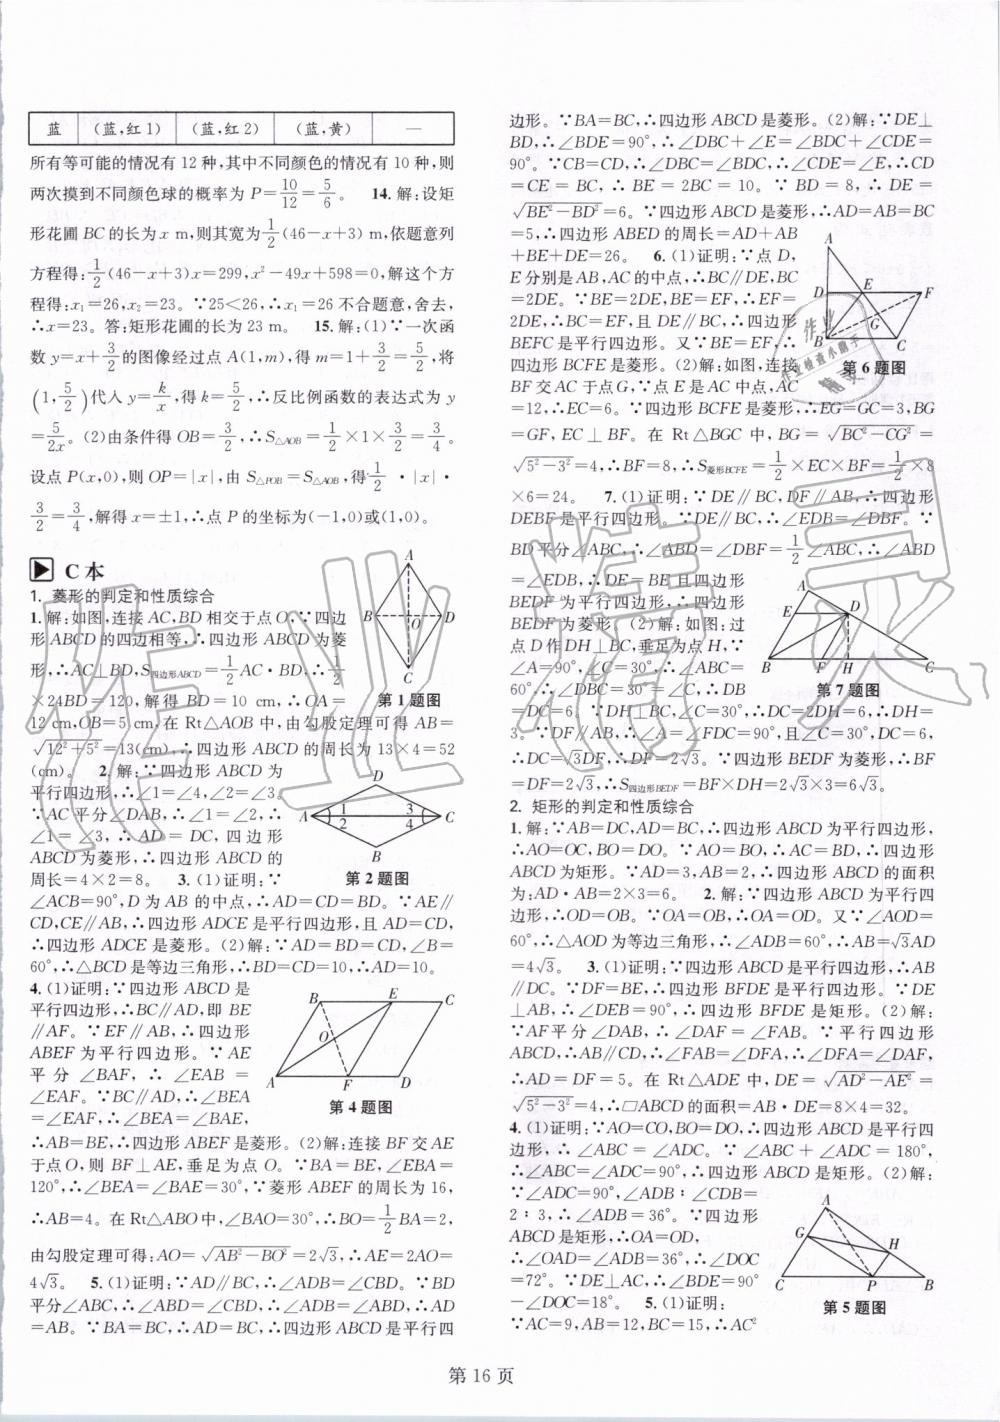 蓝 (蓝,红1) (蓝,红2) (蓝,黄) —
所有等可能的情况有12种,其中不同颜色的情况有10种,则
两次摸到不同颜色球的概率为P=10/12=5/6。 14. 解:设矩
形花圃BC的长为x m,则其宽为1/2(46-x+3) m,依题意列
方程得:1/2(46-x+3)x=299,x²-49x+598=0,解这个方
程得:x₁=26,x₂=23。∵25<26,∴x₁=26不合题意,舍去,
∴x=23。答:矩形花圃的长为23 m。 15. 解:(1)∵一次函
数y=x+3/2的图像经过点A(1,m),得m=1+3/2=5/2,将
(1,5/2)代入y=k/x,得k=5/2,∴反比例函数的表达式为y
=5/2x。(2)由条件得OB=3/2,∴S△AOB=1/2×1×3/2=3/4。
设点P(x,0),则OP=|x|,由S△POB=S△AOB,得1/2·|x|·
3/2=3/4,解得x=±1,∴点P的坐标为(-1,0)或(1,0)。
C本
1. 菱形的判定和性质综合
1. 解:如图,连接AC,BD相交于点O,∵四边
形ABCD的四边相等,∴四边形ABCD为菱
形,∴AC⊥BD,S四边形ABCD=1/2AC·BD,∴1/2
×24BD=120,解得BD=10 cm,∴OA=
12 cm,OB=5 cm,在Rt△AOB中,由勾股定理可得AB=
√12²+5²=13(cm),∴四边形ABCD的周长为13×4=52
(cm)。 2. 解:∵四边形ABCD为
平行四边形,∴∠1=∠4,∠2=∠3。
∵AC平分∠DAB,∴∠1=∠2,∴
∠1=∠3,∴AD=DC,四边形
ABCD为菱形,∴四边形ABCD的
周长=4×2=8。 3. (1)证明:∵
∠ACB=90°,D为AB的中点,∴AD=CD=BD。∵AE∥
CD,CE∥AB,∴四边形ADCE是平行四边形,且AD=CD,
∴四边形ADCE是菱形。(2)解:∵AD=BD=CD,∠B=
60°,∴△BCD是等边三角形,∴BD=CD=10,∴AD=10。
4. (1)证明:∵四边形ABCD是
平行四边形,∴BC∥AD,即BE
∥AF。∵EF∥AB,∴四边形
ABEF为平行四边形。∵AE
平分∠BAF,∴∠EAB=
∠EAF。∵BC∥AD,∴∠BEA
=∠EAF,∴∠BEA=∠BAE,
∴AB=BE,∴四边形ABEF是菱形。(2)解:连接BF交AE
于点O,则BF⊥AE,垂足为点O。∵BA=BE,∠EBA=
120°,∴∠BEA=∠BAE=30°,∵菱形ABEF的周长为16,
∴AB=4。在Rt△ABO中,∠BAO=30°,∴BO=1/2BA=2,
由勾股定理可得:AO=√AB²-BO²=2√3,∴AE=2AO=
4√3。 5. (1)证明:∵AD∥BC,∴∠ADB=∠CBD。∵BD
平分∠ABC,∴∠ABD=∠CBD,∴∠ADB=∠ABD,∴AD
=AB。∵BA=BC,∴AD=BC,∴四边形ABCD是平行四
A B O D C
第1题图
D A 1 2 3 4 C B
第2题图
B E C O A F D
第4题图
边形。∵BA=BC,∴四边形ABCD是菱形。(2)解:∵DE⊥
BD,∴∠BDE=90°,∴∠DBC+∠E=∠BDC+∠CDE=
90°。∵CB=CD,∴∠DBC=∠BDC,∴∠CDE=∠E,∴CD
=CE=BC,∴BE=2BC=10。∵BD=8,∴DE=
√BE²-BD²=6。∵四边形ABCD是菱形,∴AD=AB=BC
=5,∴四边形ABED的周长=AD+AB
+BE+DE=26。 6. (1)证明:∵点D,
E分别是AB,AC的中点,∴BC∥DE,BC
=2DE。∵BE=2DE,BE=EF,∴EF=
2DE,∴BC=EF,且DE∥BC,∴四边形
BEFC是平行四边形。又∵BE=EF,∴
四边形BCFE是菱形。(2)解:如图,连接
BF交AC于点G,∵点E是AC中点,AC=
12,∴EC=6。∵四边形BCFE是菱形,∴EG=GC=3,BG
=GF,EC⊥BF。在Rt△BGC中,BG=√BC²-CG²=
√5²-3²=4,∴BF=8,∴S菱形BCFE=1/2×EC×BF=1/2×8
×6=24。 7. (1)证明:∵DE∥BC,DF∥AB,∴四边形
DEBF是平行四边形。∵DE∥BC,∴∠EDB=∠DBF。∵
BD平分∠ABC,∴∠ABD=∠DBF=1/2∠ABC,∴∠ABD
=∠EDB,∴DE=BE且四边形
BEDF为平行四边形,∴四边形
BEDF为菱形。(2)解:如图:过
点D作DH⊥BC,垂足为点H。∵
∠A=90°,∠C=30°,∴∠ABC=
60°,∴∠DBC=30°=∠C,∴DB
=DC=6。∵DH⊥BC,∠C=30°,∴DC=2DH=6,∴DH=
3。∵DF∥AB,∴∠A=∠FDC=90°,且∠C=30°,DC=6,
∴DC=√3DF,∴DF=2√3。∵四边形BEDF为菱形,∴BF
=DF=2√3,∴S四边形BEDF=BF×DH=2√3×3=6√3。
2. 矩形的判定和性质综合
1. 解:∵AB=DC,AD=BC,∴四边形ABCD为平行四边形,
∴AO=OC,BO=DO。∵AO=BO,∴AC=BD,∴四边形
ABCD为矩形。∵AD=3,AB=2,∴四边形ABCD的面积
为:AD·AB=2×3=6。 2. 解:∵四边形ABCD为平行四
边形,∴OD=OB。∵OA=OB,∴OA=OD。又∵∠AOD=
60°,∴△AOD为等边三角形,∴∠ADB=60°,∴AB=√3AD
=4√3。 3. (1)证明:∵四边形ABCD是平行四边形,∴AB
∥DC。∵DF=BE,∴四边形BFDE是平行四边形。∵DE
⊥AB,∴∠DEB=90°,∴四边形BFDE是矩形。(2)解:
∵AF平分∠DAB,∴∠DAF=∠FAB。∵平行四边形
ABCD,∴AB∥CD,∴∠FAB=∠DFA,∴∠DFA=∠DAF,
∴AD=DF=5。在Rt△ADE中,DE=√AD²-AE²=
√5²-3²=4,∴▱ABCD的面积=AB·DE=8×4=32。
4. (1)证明:∵AO=CO,BO=DO,∴四边形ABCD是平行四边形,
∴∠ABC=∠ADC。∵∠ABC+∠ADC=180°,
∴∠ABC=∠ADC=90°,∴四边形ABCD是矩形。(2)解:
∵∠ADC=90°,∠ADB∶∠CDB=
2∶3,∴∠ADB=36°。∵四边形
ABCD是矩形,∴OA=OD,
∴∠OAD=∠ADB=36°,∴∠DOC
=72°。∵DE⊥AC,∴∠BDE=90°
-∠DOC=18°。 5. (1)证明:
∵AC=9,AB=12,BC=15,∴AC²
A D E F G B C
第6题图
A E D B F H C
第7题图
A G H C P B
第5题图
作业
作业检查小助手
精灵
作业精灵
第16页